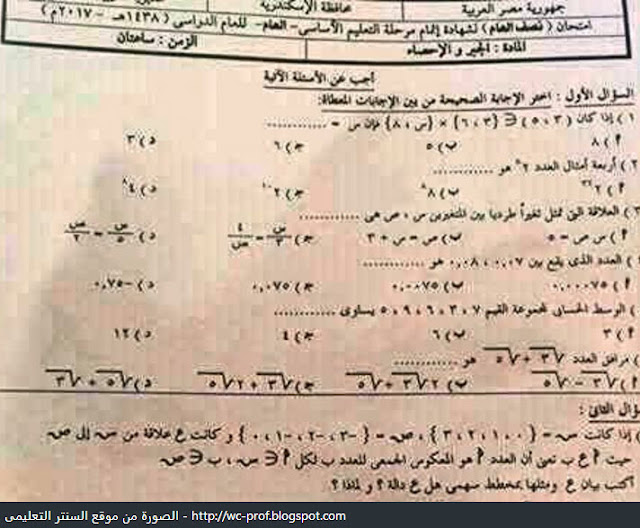 جمهورية مصر العربية
محافظة الإسكندرية
امتحان ( نصف العام ) لشهادة إتمام مرحلة التعليم الأساسى - العام - للعام الدراسى ( ١٤٣٨هـ - ٢٠١٧م )
المادة : الجبر و الإحصاء
الزمن : ساعتان
أجب عن الأسئلة الآتية
السؤال الأول : اختر الإجابة الصحيحة من بين الإجابات المعطاة:
١ ) إذا كان ( ٣ ، ٥ ) ∈ { ٣ ، ٦ } × { س ، ٨ } فإن س = ............
أ ) ٨ ب) ٥ جـ) ٦ د ) ٣
٢ ) أربعة أمثال العدد ٢^٨ هو ............
أ ) ٢ ب) ٨^٨ جـ) ٢^١٠ د ) ٤^٨
٣ ) العلاقة التى تمثل تغيراً طردياً بين المتغيرين س ، ص هى ............
أ ) س ص = ٥ ب) ص = س + ٣ جـ) س/٣ = ٤/ص د ) س/٥ = ص/٢
) العدد الذى يقع بين ٠,٠٧ ، ٠,٠٨ هو ............
أ ) ٠,٠٠٠٧٥ ب) ٠,٠٠٧٥ جـ) ٠,٠٧٥ د ) -٠,٧٥
) الوسط الحسابى لمجموعة القيم ٧ ، ٣ ، ٦ ، ٩ ، ٥ يساوى ............
أ ) ٣ ب) ٦ جـ) ٤ د ) ١٢
) مرافق العدد √٣ + √٥ هو ............
أ ) √٣ - √٥ ب) ٢√٣ + √٥ جـ) √٣ + ٢√٥ د ) √٥ + √٣
ؤال الثانى :
) إذا كانت س = { ٠ ، ١ ، ٢ ، ٣ } ، ص = { -٣ ، -٢ ، -١ ، ٠ } و كانت ع علاقة من س إلى ص
حيث أ ع ب تعنى أن العدد أ هو المعكوس الجمعى للعدد ب لكل أ ∈ س ، ب ∈ ص
أكتب بيان ع ومثلها بمخطط سهمى هل ع دالة ؟ و لماذا ؟
الصورة من موقع السنتر التعليمى - http://wc-prof.blogspot.com